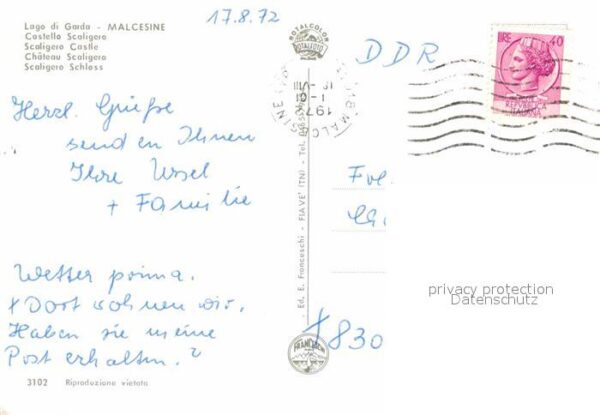 Lago di Garda - MALCESINE
Castello Scaligero
Scaligero Castle
Château Scaligero
Scaligero Schloss
17.8.72
ROTALCOLOR
ROTALFOTO
DDR
LIRE 40
REPVBBLICA
ITALIANA
MALCESINE
1972
Herzl. Grüße
senden Ihnen
Ihre Ursel
+ Familie
Wetter prima.
x Dort wohnen wir.
Haben sie meine
Post erhalten?
x 830
Ed. E. Franceschi - FIAVE' (TN) - Tel.
FRANCESCHI
privacy protection
Datenschutz
3102 Riproduzione vietata